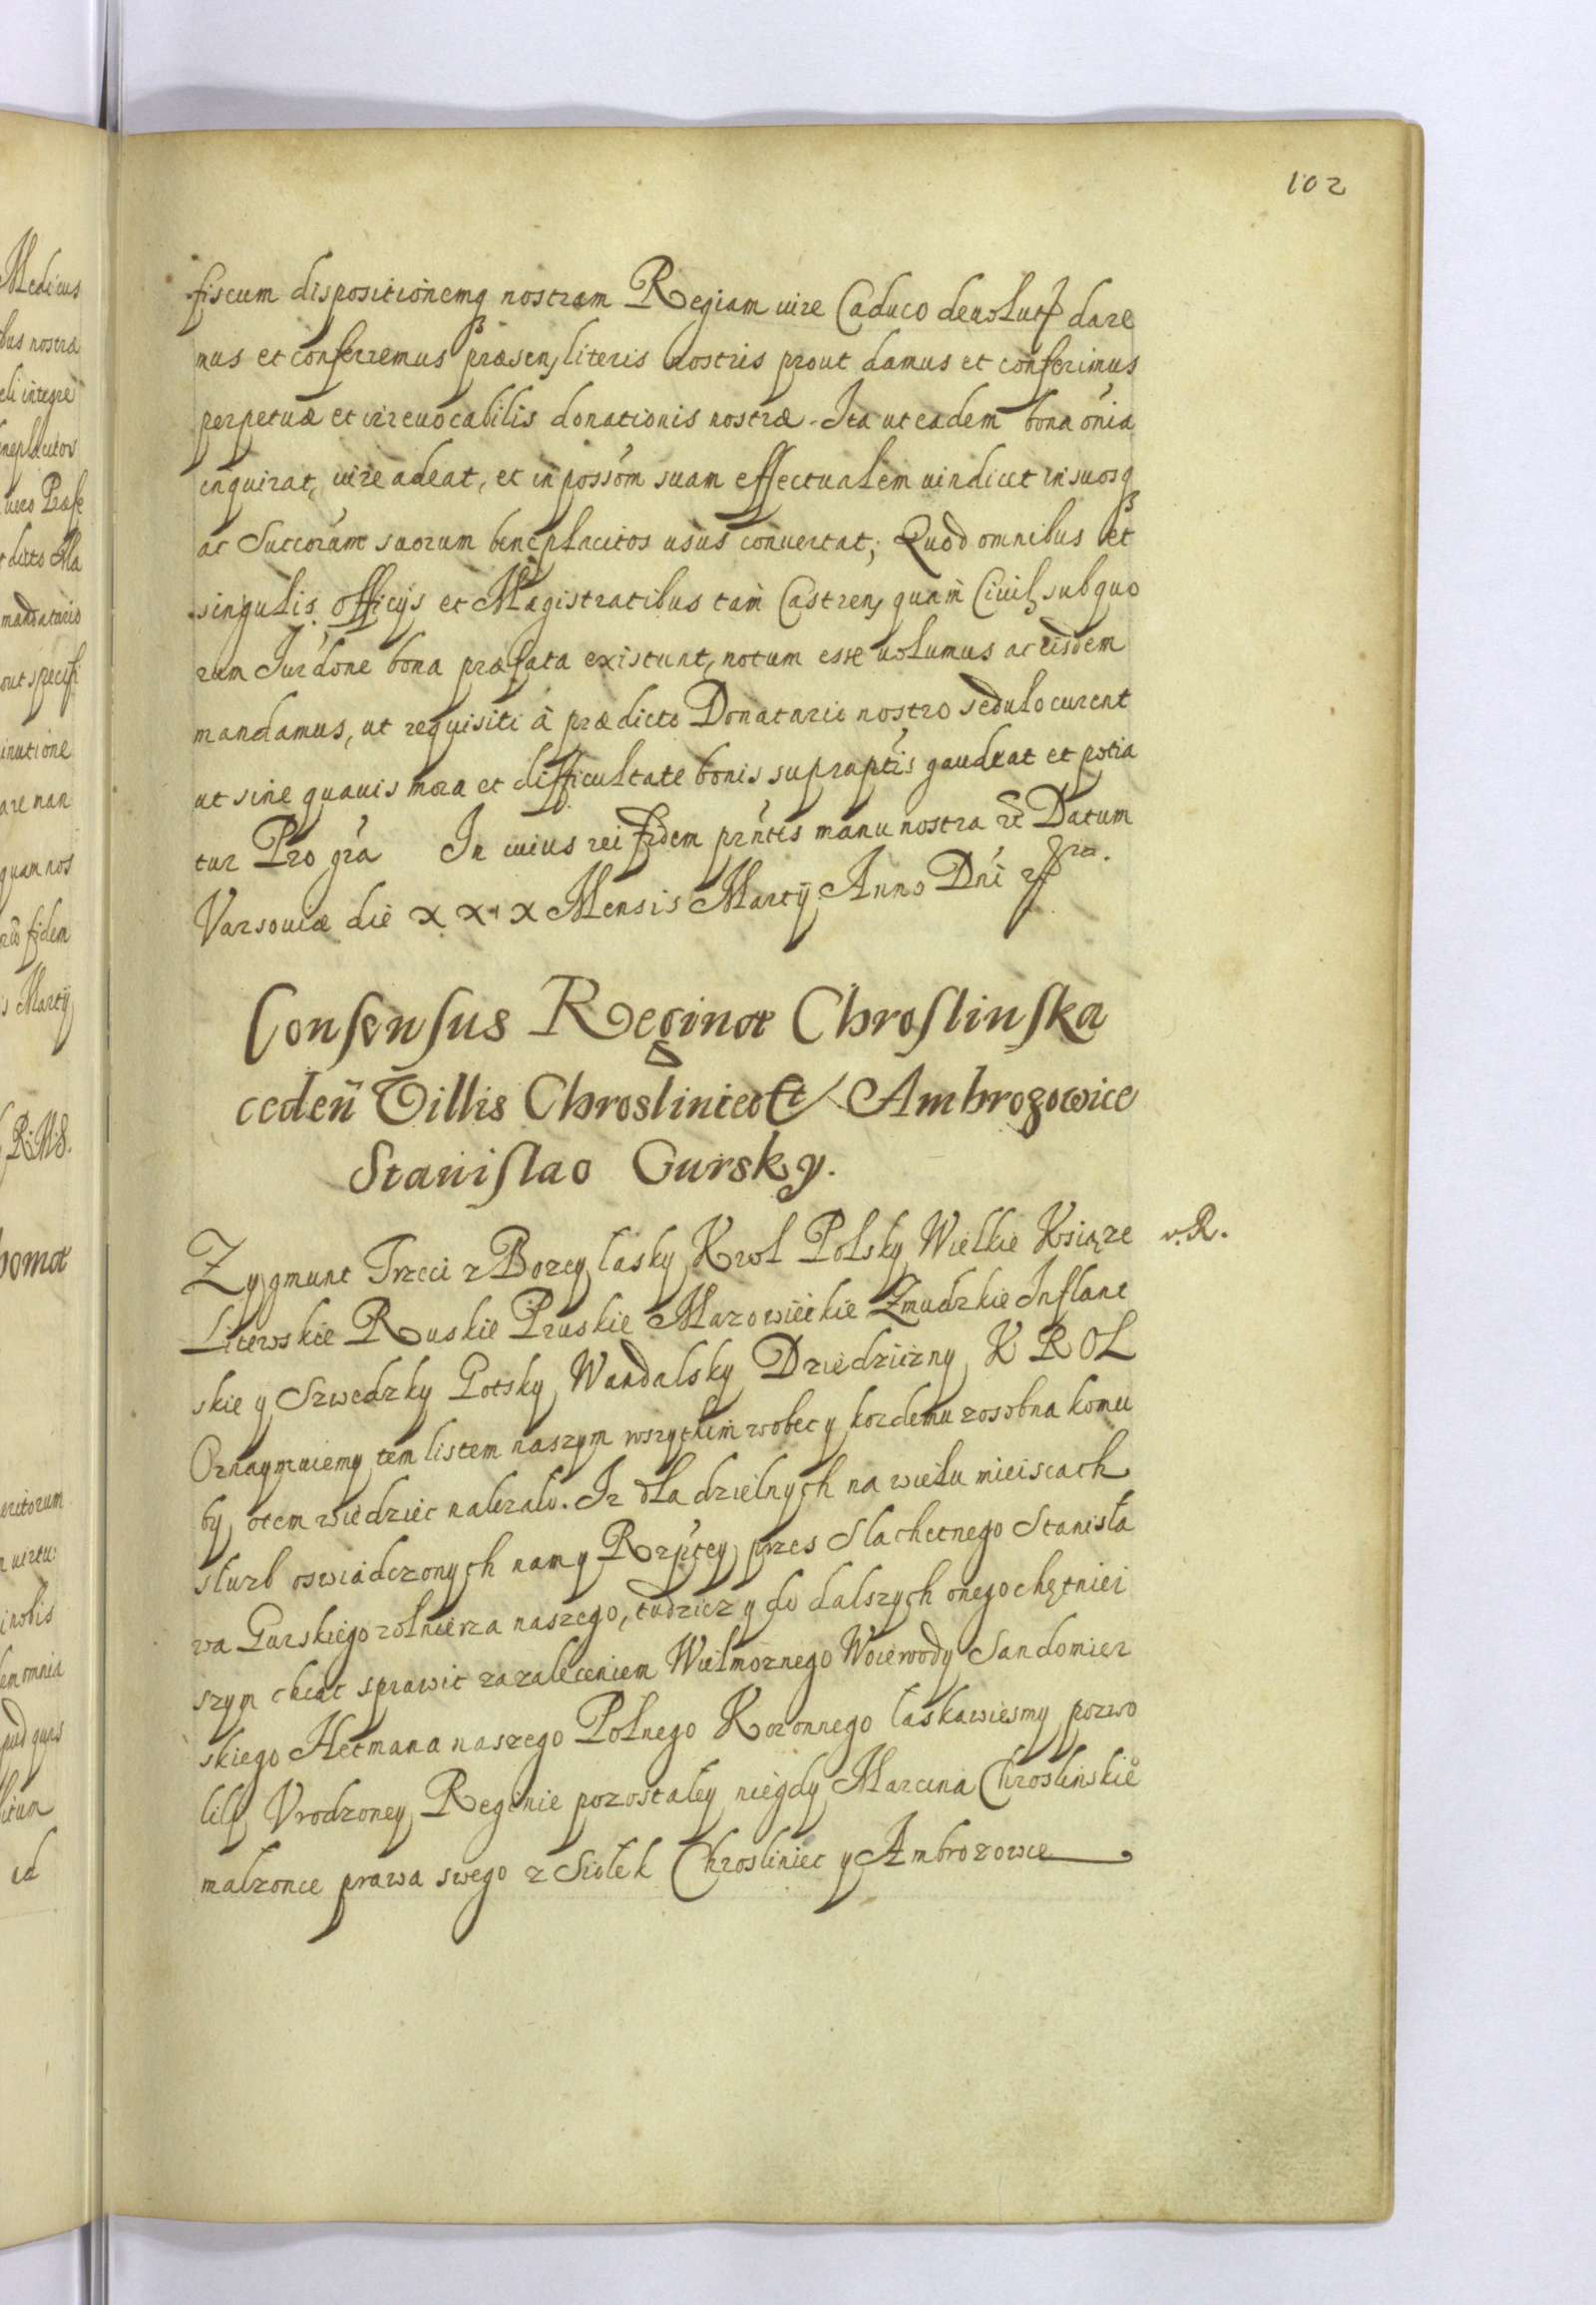 102
fiscum dispositionemq nostram Regiam iure Caduco deuolut dare
mus et conferremus præsen literis nostris prout damus et conferimus
perpetuæ et irreuocabilis donationis nostræ. Ita ut eadem bona õnia
inquirat, iure adeat, et in possõm suam effectualem vindicet in suosq
ac Succorum suorum beneplacitos usus conuertat; Quod omnibus et
singulis officijs et Magistratibus tam Castren quam Ciuil sub quo
rum Iurdone bona præfata existunt, notum esse uolumus ac eisdem
mandamus, ut requisiti à prædicto Donatario nostro sedulo curent
ut sine quauis mora et difficultate bonis supraptis gaudeat et potia
tur Pro gra In cuius rei fidem prntis manu nostra Datum
Varsouiæ die XXIX Mensis Martij Anno Dni
Consensus Reginæ Chroslinska
ceden Villis Chrosliniec et Ambrozowice
Stanislao Gursky.
Zygmunt Trzeci z Bozey lasky Krol Polsky Wielkie Książe v. R.
Litewskie Ruskie Pruskie Mazowieckie Zmudzkie Inflant
skie y Szwedzky Gotsky Wandalsky Dziedziczny KROL
Oznaymuiemy tem listem naszym wszytkim wobec y kozdemu zosobna komu
by otem wiedziec nalezalo. Iz dla dzielnych na wielu mieiscach
sluzb oswiadczonych nam y Rzptey przes Slachetnego Stanisła
wa Gurskiego zołnierza naszego, tudziez y do dalszych onego chętniei
szym chcąc sprawic za zaleceniem Wielmoznego Woiewody Sandomier
skiego Hetmana naszego Polnego Koronnego łaskawiesmy pozwo
lili Vrodzoney Reginie pozostałey niegdy Marcina Chroslinskie
małzonce prawa swego z Siołek Chrosliniec y Ambrozowce